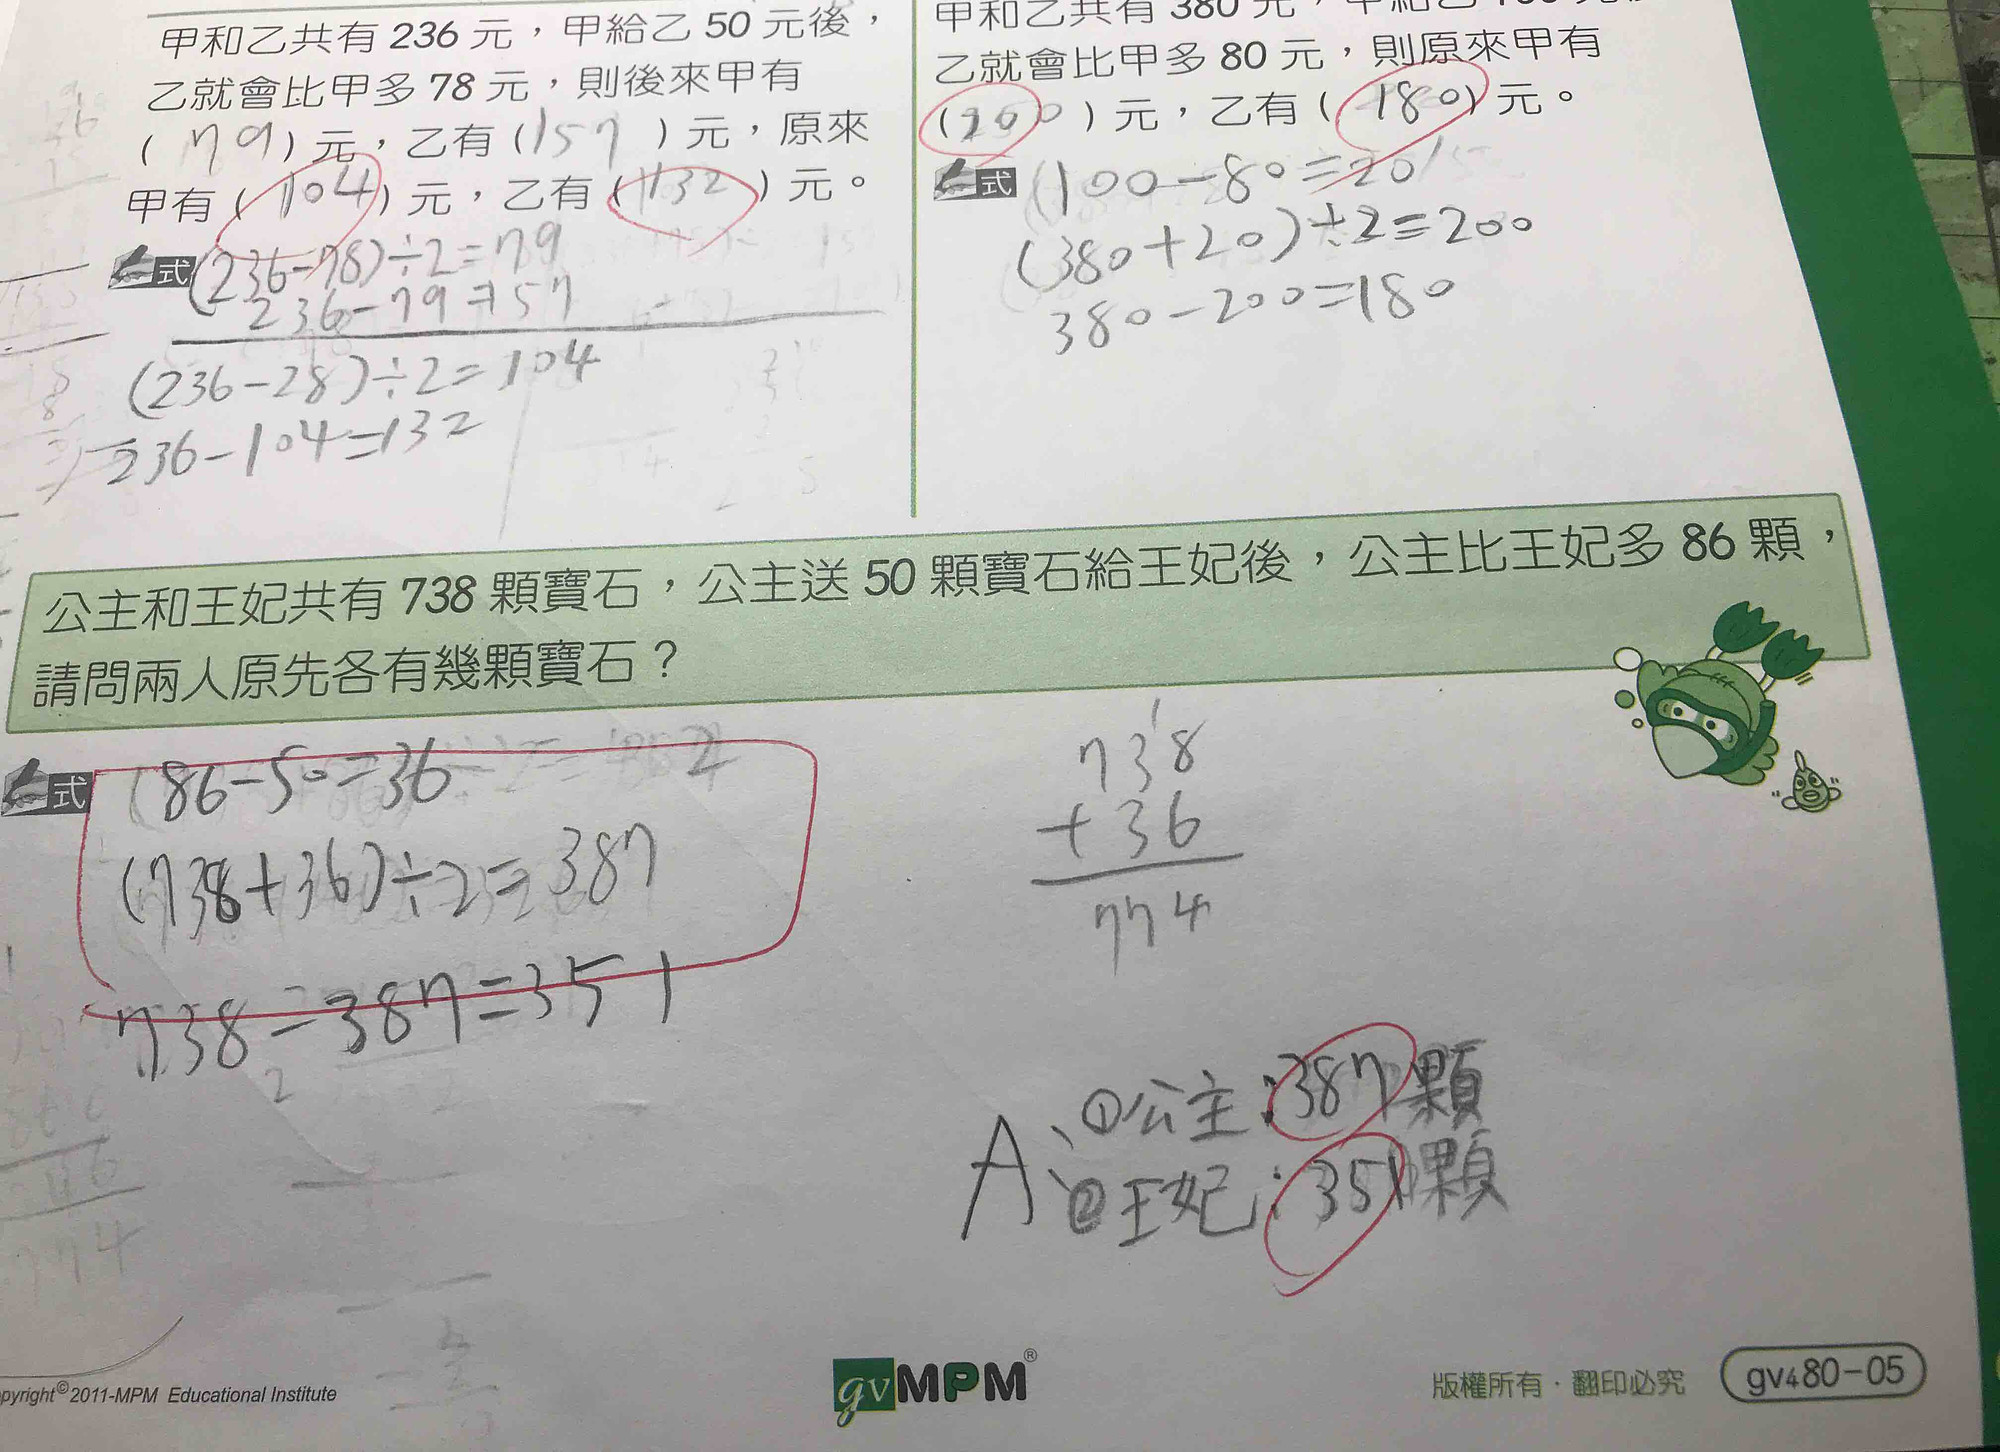 甲和乙共有 236 元，甲給乙 50 元後，
乙就會比甲多 78 元，則後來甲有
( 79 ) 元，乙有 ( 157 ) 元，原來
甲有 ( 104 ) 元，乙有 ( 132 ) 元。
式 (236-78)÷2=79
236-79=157
(236-28)÷2=104
236-104=132
甲和乙共有 380 元，甲給乙 100 元
乙就會比甲多 80 元，則原來甲有
( 200 ) 元，乙有 ( 180 ) 元。
式 (100-80=20
(380+20)÷2=200
380-200=180
公主和王妃共有 738 顆寶石，公主送 50 顆寶石給王妃後，公主比王妃多 86 顆，
請問兩人原先各有幾顆寶石？
式 (86-50=36
(738+36)÷2=387
738-387=351
1
738
+36
774
A、①公主：387顆
②王妃：351顆
pyright©2011-MPM Educational Institute
gv MPM®
版權所有·翻印必究
gv480-05